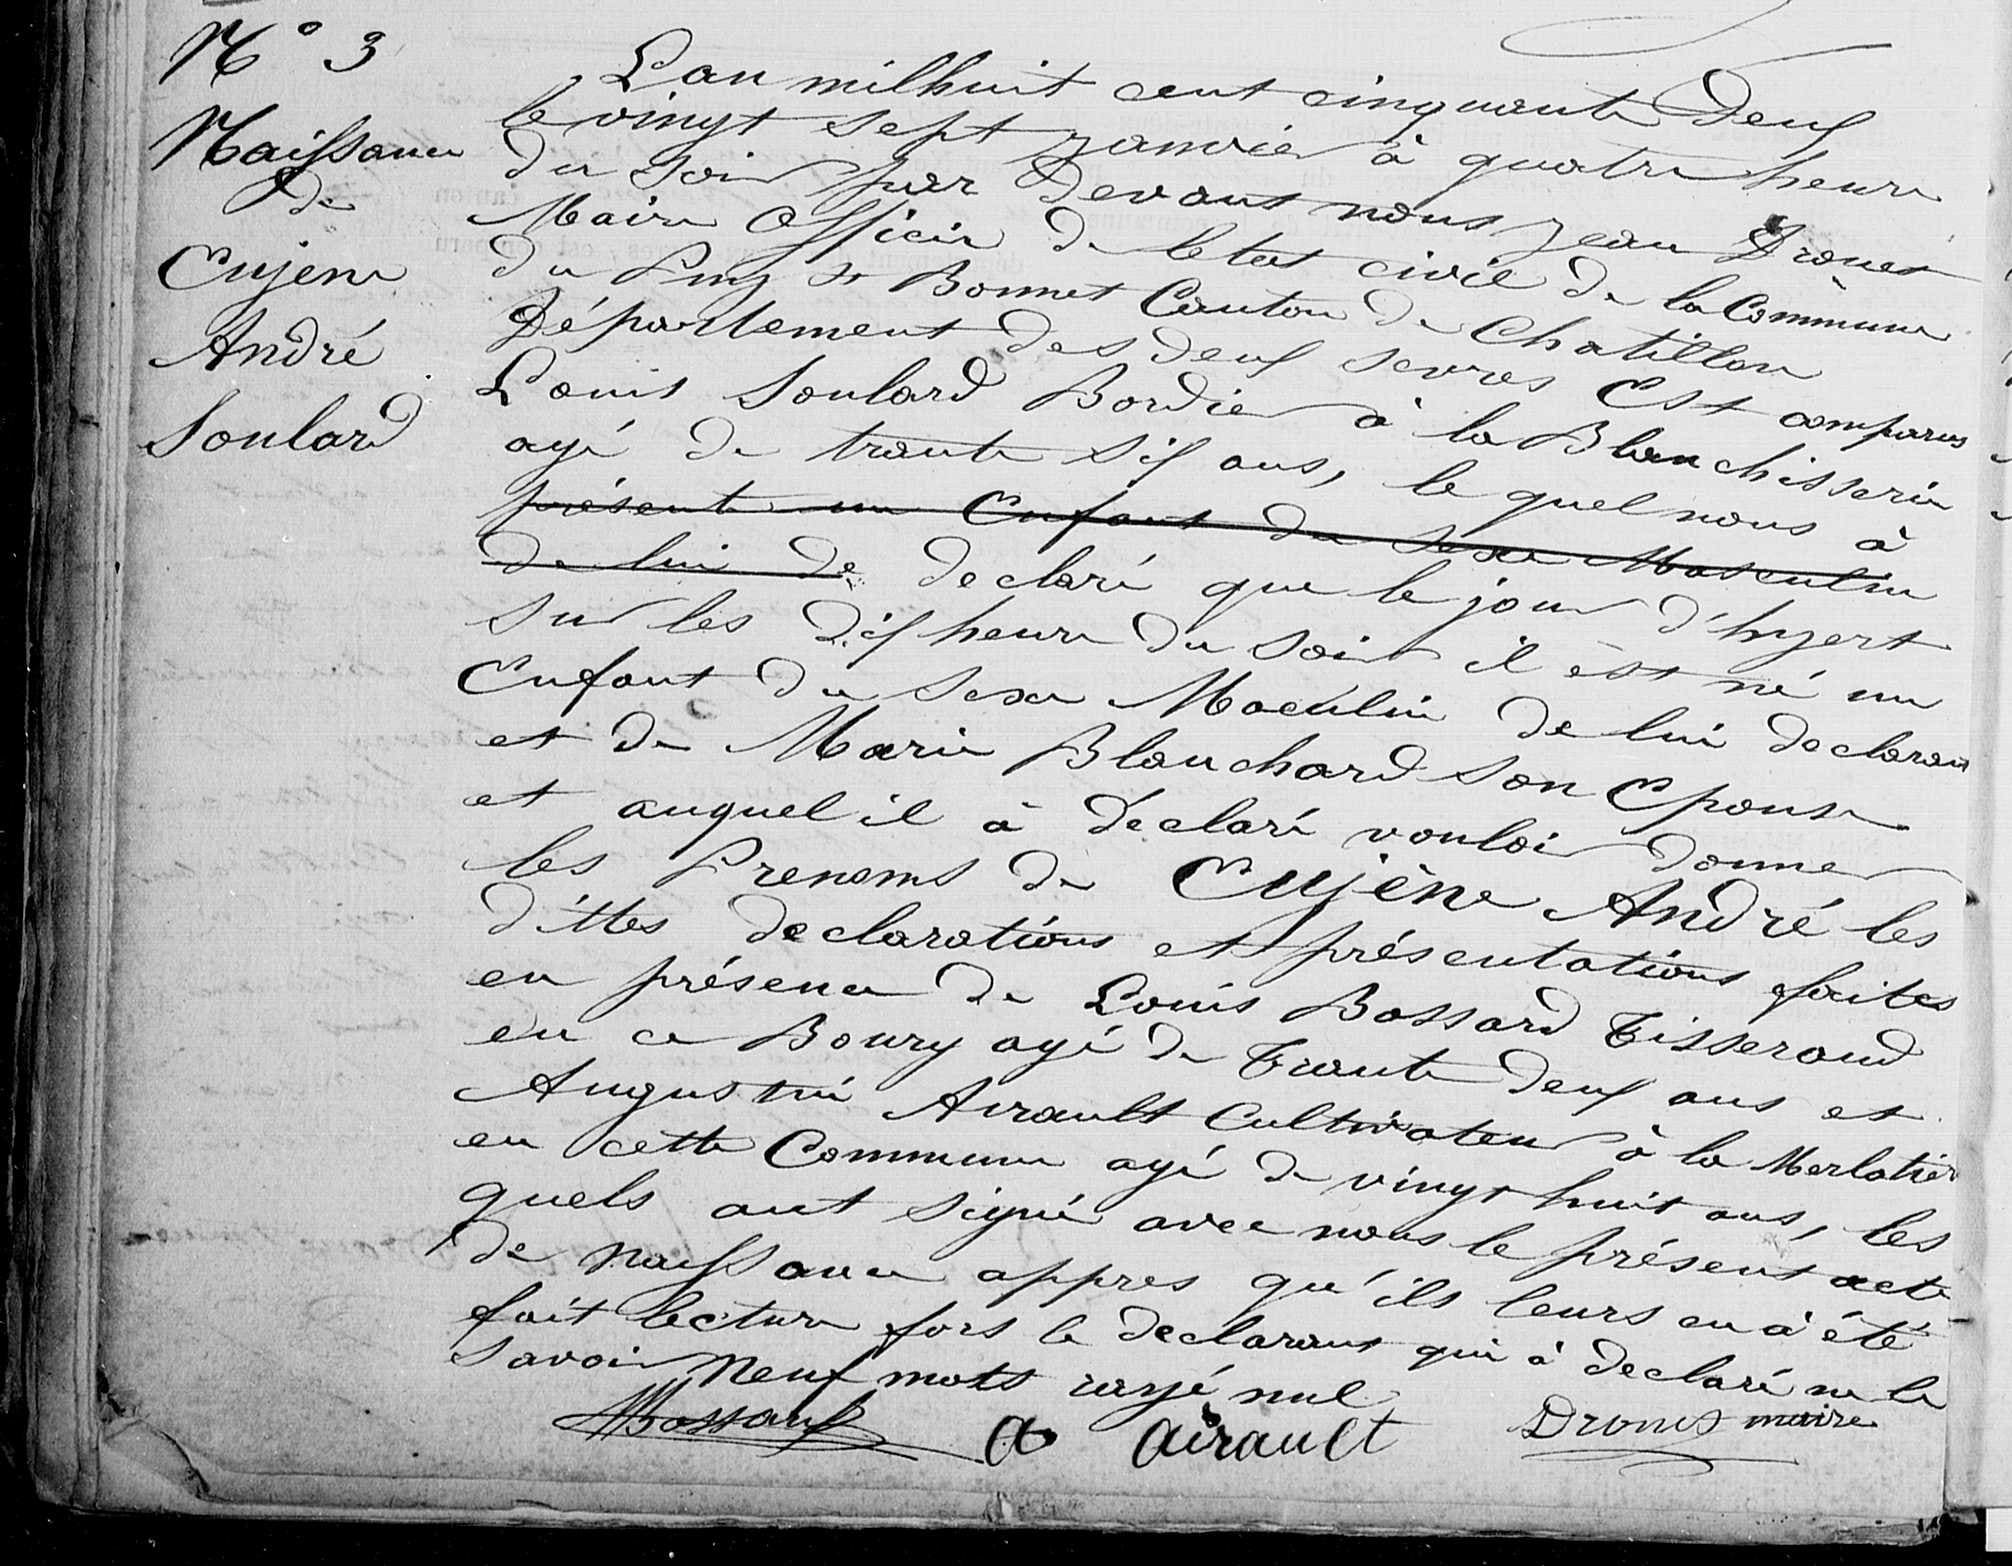 N° 3
Naissance
de
Eujene
André
Soulard
L'an mil huit cent cinquante deux
le vingt sept janvier à quatre heure
du soir par devant nous jean Drouet
Maire officier de letat civil de la Commune
du Puy St Bonnet Canton de Chatillon
Département des deux sevres Est comparus
Louis Soulard Bordier à la Blanchisserie
agé de trante six ans, le quel nous à
présenté un Enfant du sexe Masculin
de lui de declaré que le jour d'hyert
sur les dix heure du soir il est né un
Enfant du sexe Maculin de lui declarant
et de Marie Blanchard son Epouse
et auquel il à déclaré vouloir donner
les Prenoms de Eujène André les
dittes declarations et présentations faites
en présence de Louis Bossard Tisserand
en ce Bourg agé de Trante deux ans et
Augustin Airault Cultivateur à la Merlatier
en cette Commune agé de vingt huit ans, les
quels ont signé avec nous le présent acte
de naissance appres qu'ils leurs en à été
fait lecture fors le declarant qui à declaré ne le
savoir neuf mots rayé nul
Bossard A Airault Drouet maire